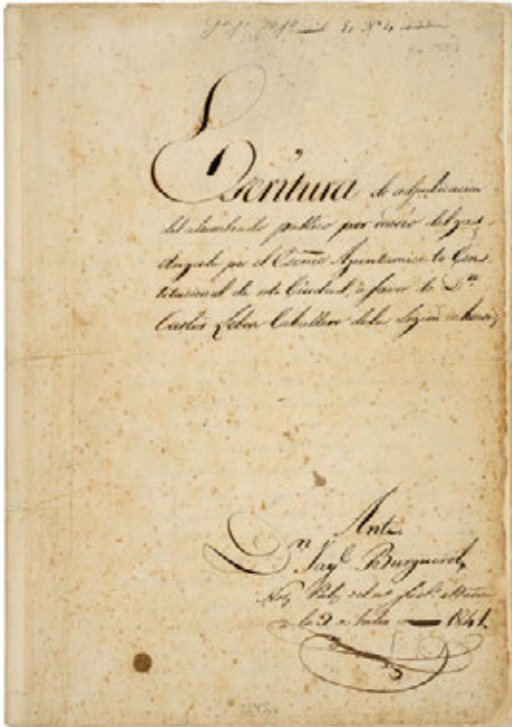 Escritura de adjudicacion
del alumbrado publico por medio del gas
otorgada por el Escmo Ayuntamiento Cons
titucional de esta Ciudad, à favor de Dn
Carlos Lebon Caballero dela Legion de honor
Ante
Dn Jayе Burguerol
Noty Puby del
1841.